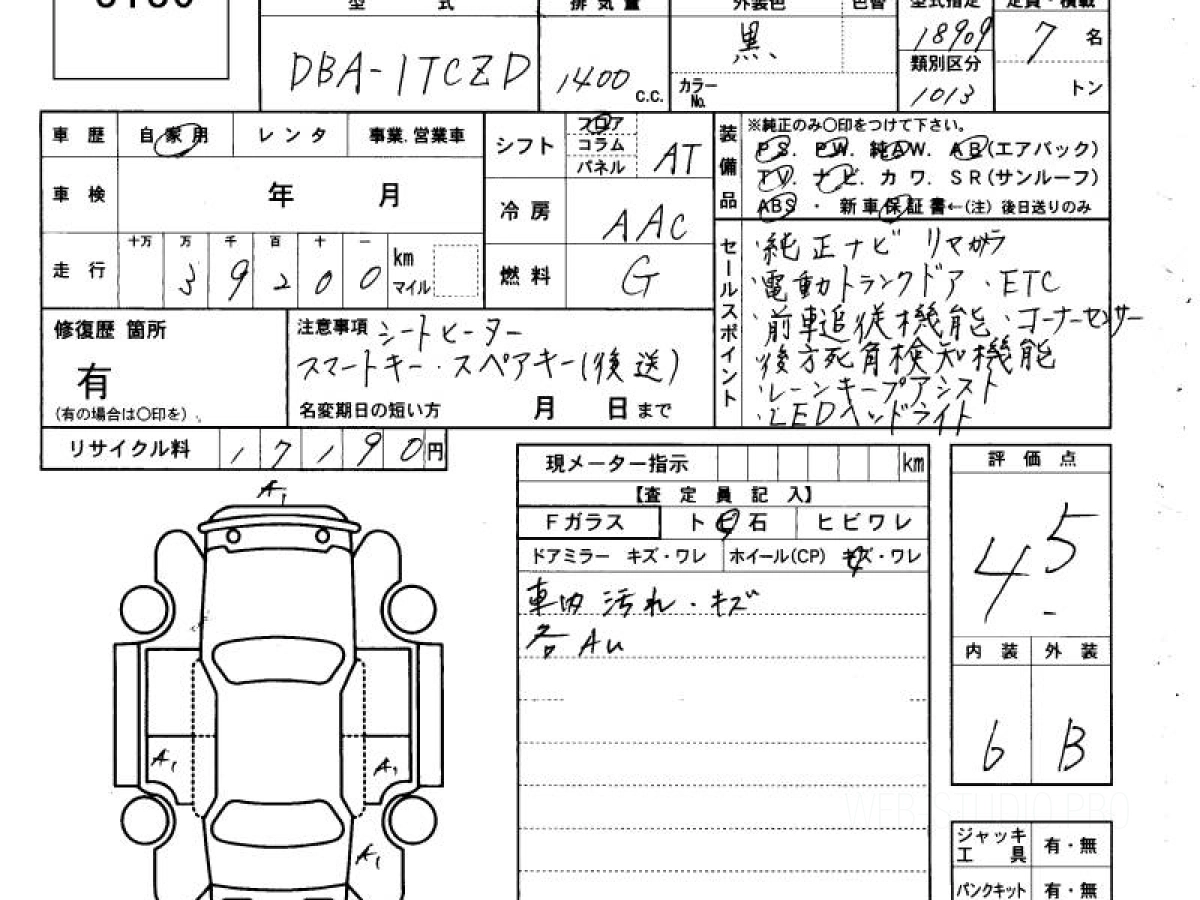 型 式
排気量
外装色
色替
型式指定
定員・積載
DBA-1TCZD
1400
c.c.
黒
カラーNo.
18909
類別区分
1013
7 名
トン
車 歴 自家用 レンタ 事業.営業車
車 検 年 月
走 行 十万 万 千 百 十 一
39200 km マイル
シフト フロア コラム パネル AT
冷 房 AAC
燃 料 G
装備品
※純正のみ〇印をつけて下さい。
PS. PW. 純AW. AB(エアバック)
TV. ナビ. カワ. SR(サンルーフ)
ABS ・ 新車保証書←(注) 後日送りのみ
セールスポイント
・純正ナビ リマカラ
・電動トランクドア・ETC
・前車追従機能・コーナーセンサー
・後方死角検知機能
・レーンキープアシスト
・LEDヘッドライト
修復歴 箇所
有
(有の場合は〇印を)
注意事項 シートヒーター
スマートキー・スペアキー(後送)
名変期日の短い方 月 日まで
リサイクル料 17190円
現メーター指示 km
【査 定 員 記 入】
Fガラス トビ石 ヒビワレ
ドアミラー キズ・ワレ ホイール(CP) キズ・ワレ
車内汚れ・キズ
各AU
評 価 点
4.5
内 装 外 装
6 B
A1
A1
A1
A1
WEB-STUDIO PRO
ジャッキ工具 有・無
パンクキット 有・無